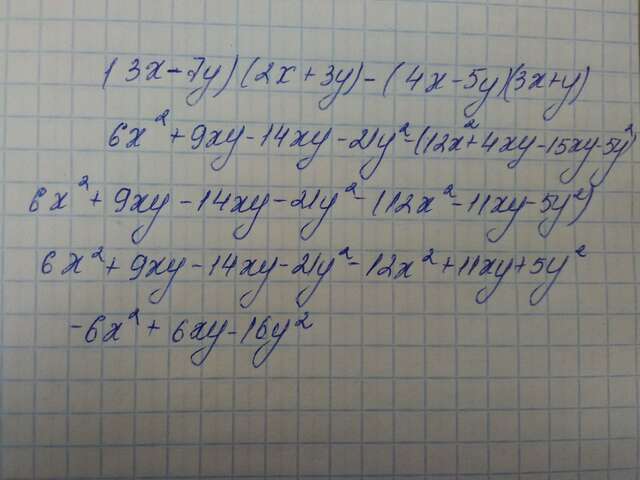 (3x-7y)(2x+3y)-(4x-5y)(3x+y)
6x²+9xy-14xy-21y²-(12x²+4xy-15xy-5y²)
6x²+9xy-14xy-21y²-(12x²-11xy-5y²)
6x²+9xy-14xy-21y²-12x²+11xy+5y²
-6x²+6xy-16y²